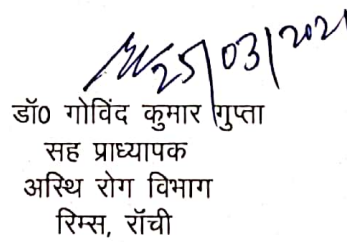 25/03/2021
डॉ0 गोविंद कुमार गुप्ता
सह प्राध्यापक
अस्थि रोग विभाग
रिम्स, राँची